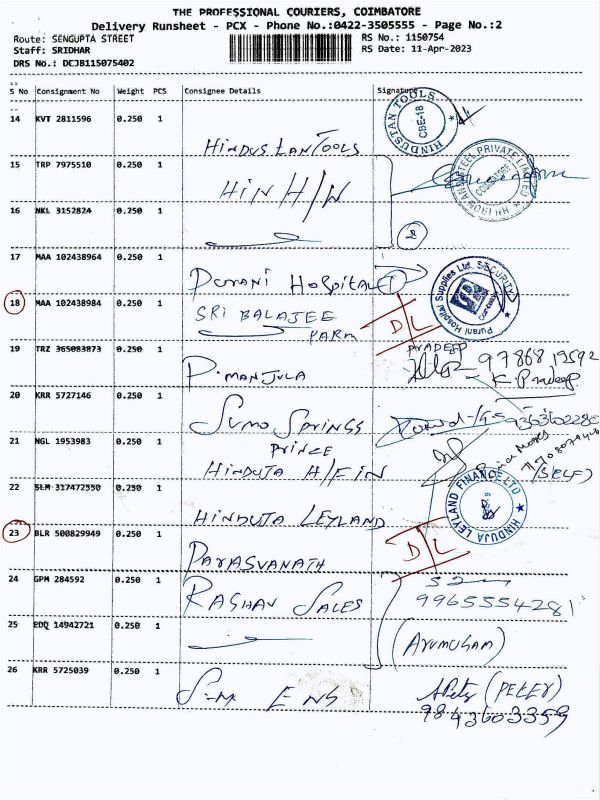 THE PROFESSIONAL COURIERS, COIMBATORE
Delivery Runsheet - PCX - Phone No.:0422-3505555 - Page No.:2
Route: SENGUPTA STREET RS No.: 1150754
Staff: SRIDHAR RS Date: 11-Apr-2023
DRS No.: DCJB115075402
S No Consignment No Weight PCS Consignee Details Signature
14 KVT 2811596 0.250 1 HINDUSTAN TOOLS
HINDUSTAN TOOLS CBE-18
15 TRP 7975510 0.250 1 HIN H/W
PRIVATE LIMITED COIMBATORE
16 NKL 3152824 0.250 1
2
17 MAA 102438964 0.250 1 PURANI HOSPITAL
Purani Hospital Supplies Ltd. SECURITY
18 MAA 102438984 0.250 1 SRI BALAJEE
PARM
D/L
19 TRZ 365083873 0.250 1 P. MANJULA
PRADEEP
9786819592
K Pradeep
20 KRR 5727146 0.250 1 SUMO SPRINGS
9363602280
21 NGL 1953983 0.250 1 PRINCE
HINDUJA H/FIN
(SELF)
22 SLM 317472550 0.250 1 HINDUJA LEYLAND
HINDUJA LEYLAND FINANCE LTD
23 BLR 500829949 0.250 1 PARASVANATH
D/L
24 GPM 284592 0.250 1 RAGHAV SALES
9965554281
25 EDQ 14942721 0.250 1
(ARUMUGAM)
26 KRR 5725039 0.250 1 S-M ENG
(PETER)
9843603359